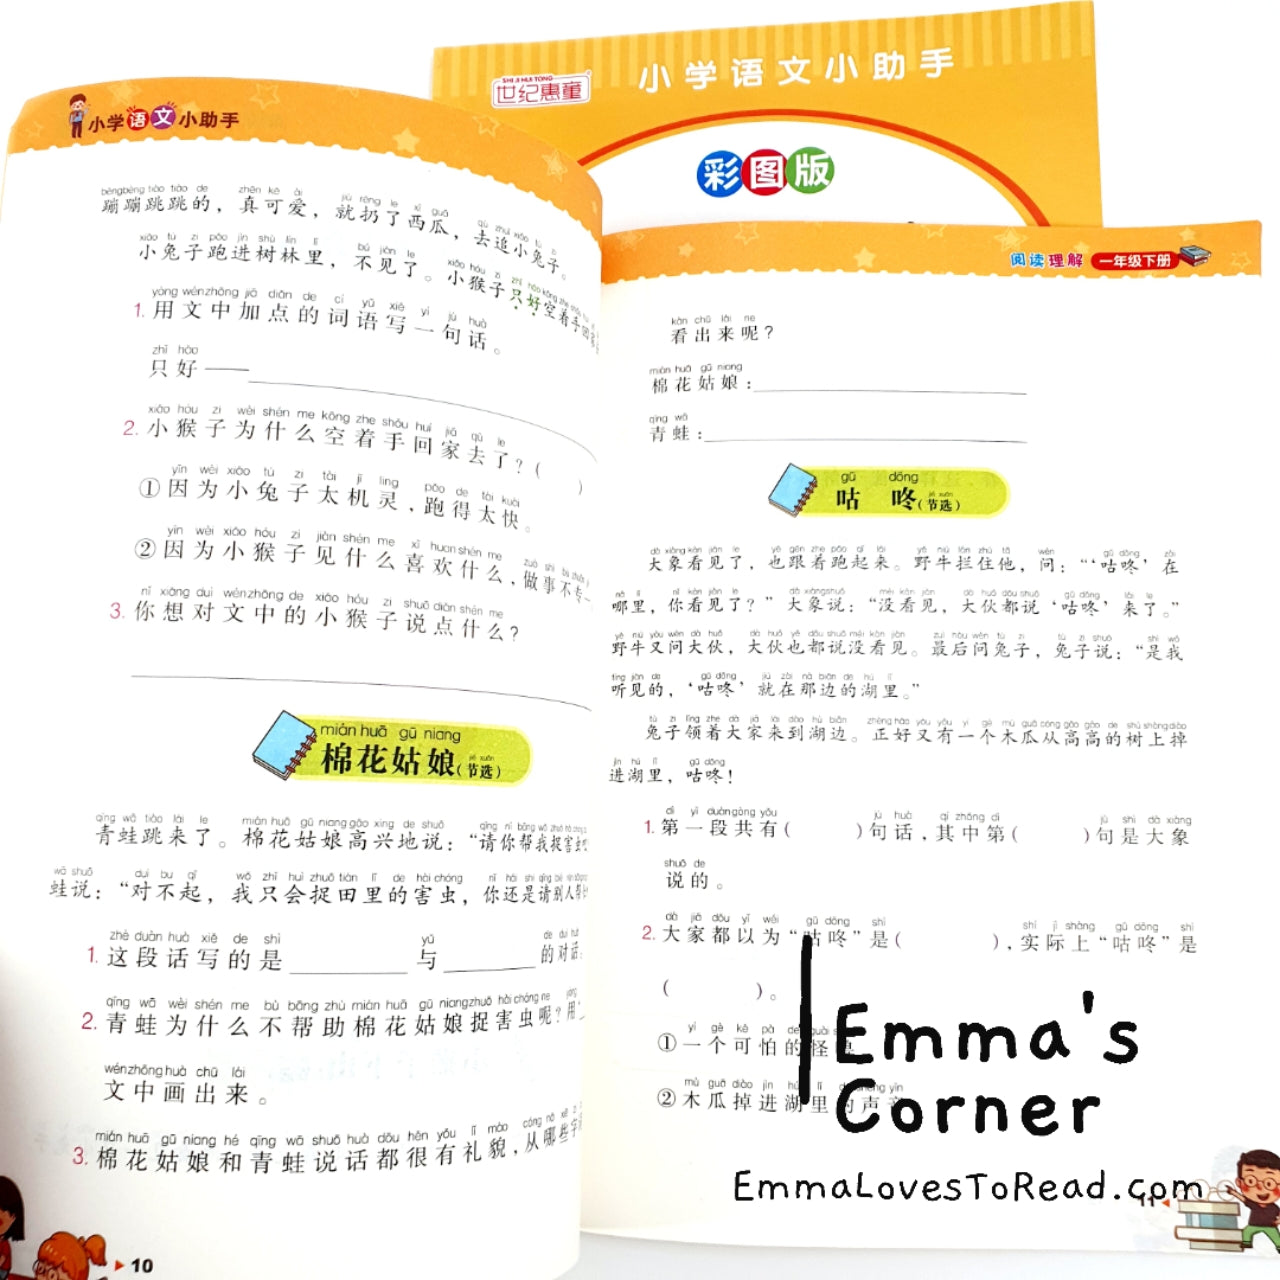 SHI JI HUI TONG
世纪惠童
小学语文小助手
彩图版
小学语文小助手
bèngbèng tiào tiào de zhēn kě ài jiù rēng le xī guā qù zhuī xiǎo tù zi
蹦蹦跳跳的，真可爱，就扔了西瓜，去追小兔子。
xiǎo tù zi pǎo jìn shù lín lǐ bú jiàn le xiǎo hóu zi zhǐ hǎo kōng zhe shǒu
小兔子跑进树林里，不见了。小猴子只好空着手回
yòng wénzhōng jiā diǎn de cí yǔ xiě yí jù huà
1. 用文中加点的词语写一句话。
zhǐ hǎo
只好——
xiǎo hóu zi wèi shén me kōng zhe shǒu huí jiā qù le
2. 小猴子为什么空着手回家去了？（ ）
yīn wèi xiǎo tù zi tài jī líng pǎo de tài kuài
①因为小兔子太机灵，跑得太快。
yīn wèi xiǎo hóu zi jiàn shén me xǐ huan shén me zuò shì bù zhuān
②因为小猴子见什么喜欢什么，做事不专一
nǐ xiǎng duì wénzhōng de xiǎo hóu zi shuō diǎn shén me
3. 你想对文中的小猴子说点什么？
mián huā gū niang
jié xuǎn
棉花姑娘（节选）
qīng wā tiào lái le mián huā gū niang gāo xìng de shuō qǐng nǐ bāng wǒ zhuō hài
青蛙跳来了。棉花姑娘高兴地说：“请你帮我捉害虫
wā shuō duì bu qǐ wǒ zhǐ huì zhuō tián lǐ de hài chóng nǐ hái shi qǐng bié rén
蛙说：“对不起，我只会捉田里的害虫，你还是请别人帮
zhè duàn huà xiě de shì yǔ de duì huà
1. 这段话写的是 与 的对话。
qīng wā wèi shén me bù bāng zhù mián huā gū niang zhuō hài chóng ne yòng
2. 青蛙为什么不帮助棉花姑娘捉害虫呢？用
wénzhōng huà chū lái
文中画出来。
mián huā gū niang hé qīng wā shuō huà dōu hěn yǒu lǐ mào cóng nǎ xiē
3. 棉花姑娘和青蛙说话都很有礼貌，从哪些字
10
阅读理解 一年级下册
kàn chū lái ne
看出来呢？
mián huā gū niang
棉花姑娘：
qīng wā
青蛙：
gū dōng
jié xuǎn
咕咚（节选）
dà xiàng kàn jiàn le yě gēn zhe pǎo qǐ lái yě niú lán zhù tā wèn gū dōng zài
大象看见了，也跟着跑起来。野牛拦住他，问：“‘咕咚’在
nǎ lǐ nǐ kàn jiàn le dà xiàng shuō méi kàn jiàn dà huǒ dōu shuō gū dōng lái le
哪里，你看见了？”大象说：“没看见，大伙都说‘咕咚’来了。”
yě niú yòu wèn dà huǒ dà huǒ yě dōu shuō méi kàn jiàn zuì hòu wèn tù zi tù zi shuō shì wǒ
野牛又问大伙，大伙也都说没看见。最后问兔子，兔子说：“是我
tīng jiàn de gū dōng jiù zài nà biān de hú lǐ
听见的，‘咕咚’就在那边的湖里。”
tù zi lǐng zhe dà jiā lái dào hú biān zhèng hǎo yòu yǒu yí gè mù guā cóng gāo gāo de shù shàng diào
兔子领着大家来到湖边。正好又有一个木瓜从高高的树上掉
jìn hú lǐ gū dōng
进湖里，咕咚！
dì yī duàn gòng yǒu jù huà qí zhōng dì jù shì dà xiàng
1. 第一段共有（ ）句话，其中第（ ）句是大象
shuō de
说的。
dà jiā dōu yǐ wéi gū dōng shì shí jì shàng gū dōng shì
2. 大家都以为“咕咚”是（ ），实际上“咕咚”是
（ ）。
yí gè kě pà de guài
①一个可怕的怪
mù guā diào jìn hú lǐ shēng yīn
②木瓜掉进湖里的声音
Emma's
Corner
EmmaLovesToRead.com
11